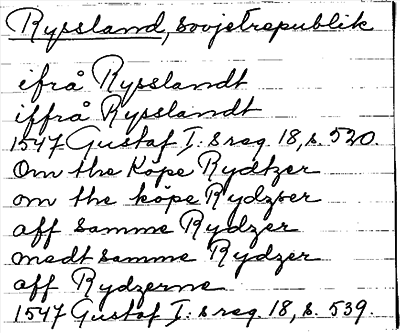 Ryssland, Sovjetrepublik
ifrå Rysslandt
iffrå Rysslandt
1547 Gustaf I: s reg. 18, s. 520.
Om the Köpe Rydtzer
om the köpe Rydzser
aff samme Rydzer
medt samme Rydzer
aff Rydzerne
1547 Gustaf I: s reg. 18, s. 539.